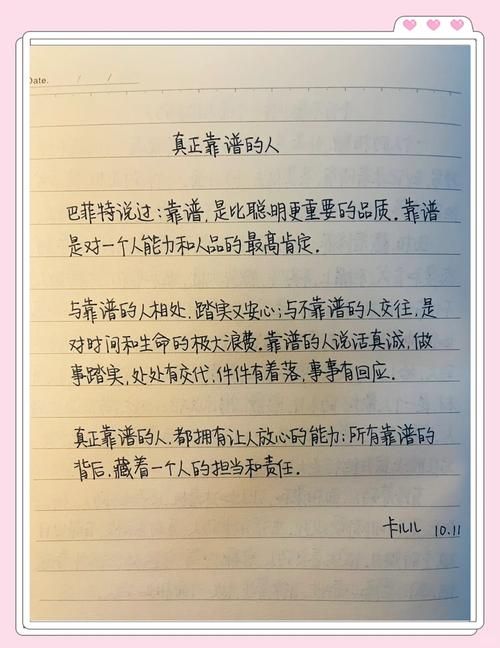 Date. / /
真正靠谱的人
巴菲特说过:靠谱,是比聪明更重要的品质.靠谱
是对一个人能力和人品的最高肯定.
与靠谱的人相处,踏实又安心;与不靠谱的人交往,是
对时间和生命的极大浪费.靠谱的人说话真诚,做
事踏实,处处有交代,件件有着落,事事有回应.
真正靠谱的人,都拥有让人放心的能力;所有靠谱的
背后,藏着一个人的担当和责任.
卡儿儿 10.11